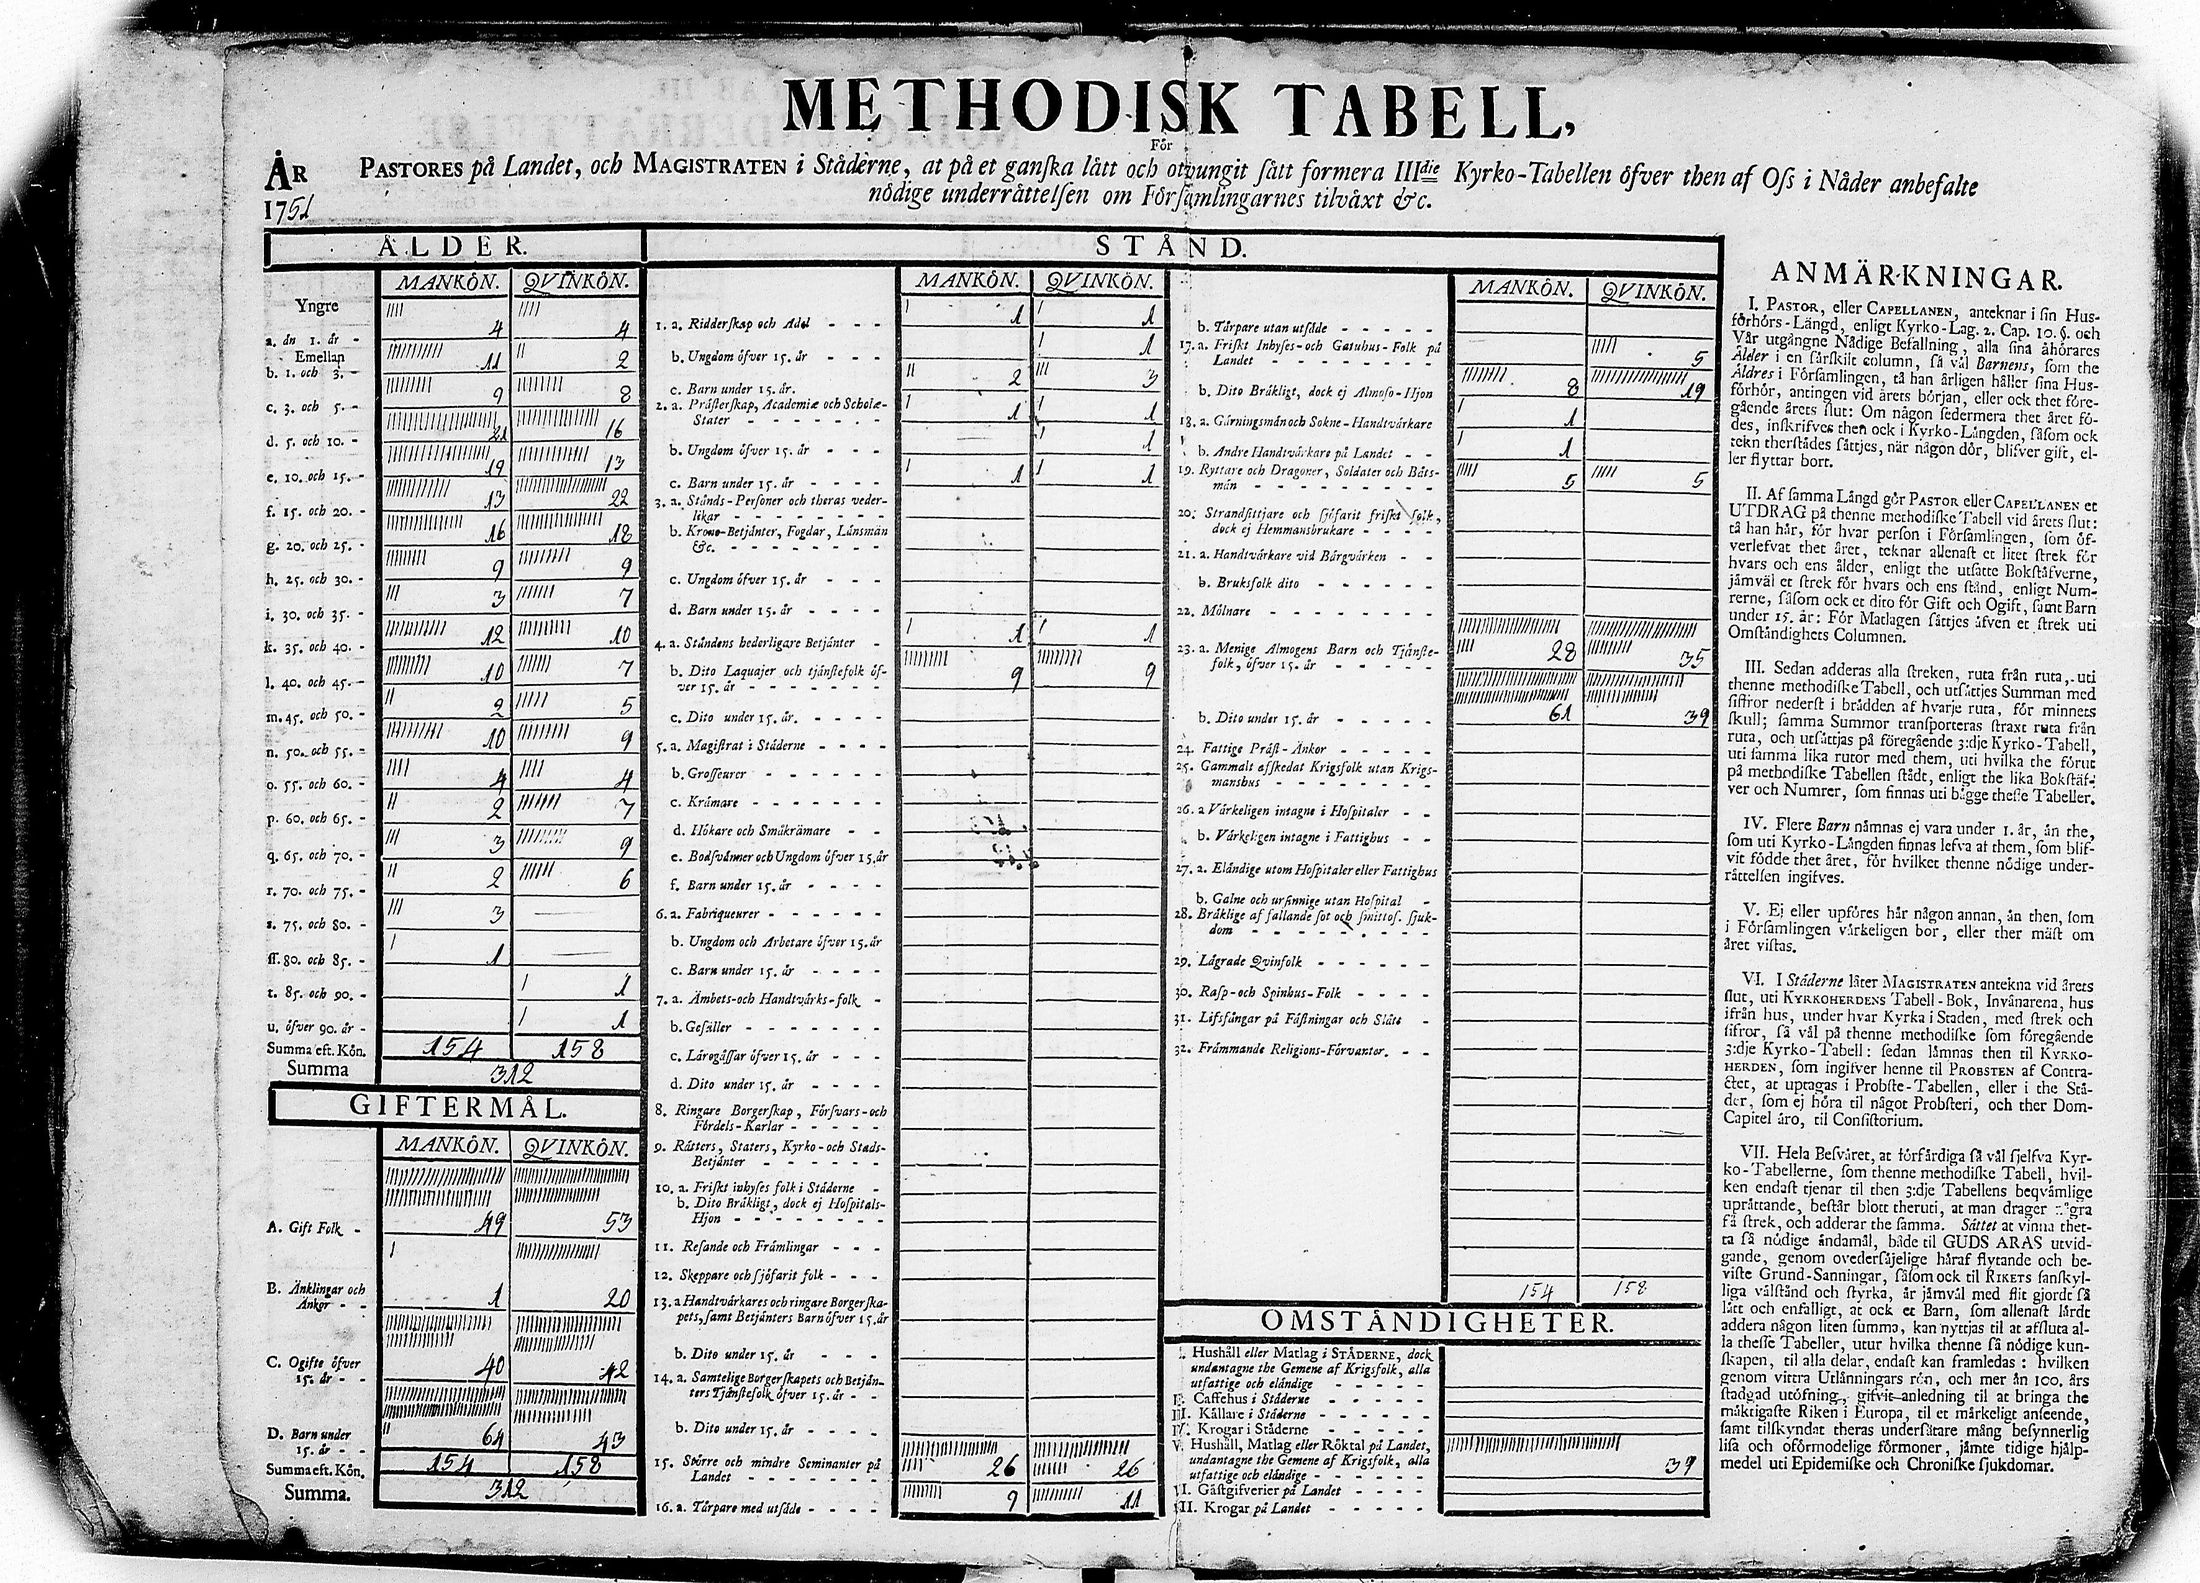 METHODISK TABELL,
För
ÅR PASTORES på Landet, och MAGISTRATEN i Ståderne, at på et ganſka lått och otvungit ſått formera IIIdie Kyrko-Tabellen öfver then af Oſs i Nåder anbefalte
1751 nödige underråttelſen om Förſamlingarnes tilvåxt &c.
ÅLDER.
MANKÖN. QVINKÖN.
Yngre
a. ån 1. år - 4 4
Emellan
b. 1. och 3. - 11 2
c. 3. och 5. - 9 8
d. 5. och 10. - 21 16
e. 10. och 15. - 19 13
f. 15. och 20. - 13 22
g. 20. och 25. - 16 18
h. 25. och 30. - 9 9
i. 30. och 35. - 3 7
k. 35. och 40. - 12 10
l. 40. och 45. - 10 7
m. 45. och 50. - 2 5
n. 50. och 55. - 10 9
o. 55. och 60. - 4 4
p. 60. och 65. - 2 7
q. 65. och 70. - 3 9
r. 70. och 75. - 2 6
s. 75. och 80. - 3
ſſ. 80. och 85. - 1
t. 85. och 90. - 1
u. öfver 90. år - 1
Summa eft. Kön. 154 158
Summa 312
GIFTERMÅL.
MANKÖN. QVINKÖN.
A. Gift Folk - 49 53
B. Änklingar och
Änkor - - 1 20
C. Ogifte öfver
15. år - - 40 42
D. Barn under
15. år - - 64 43
Summa eft. Kön. 154 158
Summa. 312
STÅND.
MANKÖN. QVINKÖN.
1. a. Ridderſkap och Adel - - - 1 1
b. Ungdom öfver 15. år - - - 1
c. Barn under 15. år. 2 3
2. a. Pråſterſkap, Academiæ och Scholæ-
Stater - - - - - - - 1 1
b. Ungdom öfver 15. år - - - 1
c. Barn under 15. år - - - - 1 1
3. a. Stånds-Perſoner och theras veder-
likar - - - - - - - -
b. Krono-Betjånter, Fogdar, Lånsmån
&c. - - - - - - - -
c. Ungdom öfver 15. år - - - -
d. Barn under 15. år - - - -
4. a. Ståndens hederligare Betjånter - 1 1
b. Dito Laquajer och tjånſtefolk öf-
ver 15. år - - - - - - - 9 9
c. Dito under 15. år. - - - -
5. a. Magiſtrat i Ståderne - - - -
b. Groſſeurer - - - - - -
c. Kråmare - - - - - - -
d. Hökare och Småkråmare - -
e. Bodſvånner och Ungdom öfver 15. år
f. Barn under 15. år - - - -
6. a. Fabriqueurer - - - - - -
b. Ungdom och Arbetare öfver 15. år
c. Barn under 15. år - - - -
7. a. Åmbets-och Handtvårks-folk -
b. Geſåller - - - - - - -
c. Lårogåſſar öfver 15. år - - -
d. Dito under 15. år - - - -
8. Ringare Borgerſkap, Förſvars-och
Fördels-Karlar - - - - -
9. Råtters, Staters, Kyrko-och Stads-
Betjånter - - - - - -
10. a. Friſkt inhyſes folk i Ståderne -
b. Dito Bråkligt, dock ej Hoſpitals-
Hjon - - - - - - - -
11. Reſande och Fråmlingar - - -
12. Skeppare och ſjöfarit folk - - -
13. a Handtvårkares och ringare Borgerſka-
pets, ſamt Betjånters Barn öfver 15. år
b. Dito under 15. år - - -
14. a. Samtelige Borgerſkapets och Betjån-
ters Tjånſtefolk öfver 15. år - -
b. Dito under 15. år - - - -
15. Större och mindre Seminanter på
Landet - - - - - - - 26 26
16. a. Torpare med utſåde - - - - 9 11
MANKÖN. QVINKÖN.
b. Torpare utan utſåde - - - - -
17. a. Friſkt Inhyſes-och Gatuhus-Folk på
Landet - - - - - - - - 5
b. Dito Bråkligt, dock ej Almoſo-Hjon 8 19
18. a. Gårningsmån och Sokne-Handtvårkare 1
b. Andre Handtvårkare på Landet - - 1
19. Ryttare och Dragoner, Soldater och Båts-
mån - - - - - - - - - 5 5
20. Strandſittjare och ſjöfarit friſkt folk,
dock ej Hemmansbrukare - - - -
21. a. Handtvårkare vid Bårgvårken - -
b. Bruksfolk dito - - - - - -
22. Mölnare - - - - - - - -
23. a. Menige Almogens Barn och Tjånſte-
folk, öfver 15. år - - - - - 28 35
b. Dito under 15. år - - - - - 61 39
24. Fattige Pråſt-Änkor - - - - -
25. Gammalt afſkedat Krigsfolk utan Krigs-
manshus - - - - - - - -
26. a Vårkeligen intagne i Hoſpitaler - -
b. Vårkeligen intagne i Fattighus - -
27. a. Elåndige utom Hoſpitaler eller Fattighus
b. Galne och urſinnige utan Hoſpital -
28. Bråklige af fallande ſot och ſmittoſ. ſjuk-
dom - - - - - - - - -
29. Lågrade Qvinfolk - - - - - -
30. Raſp-och Spinhus-Folk - - - -
31. Lifsfångar på Fåſtningar och Slått -
32. Fråmmande Religions-Förvanter. - -
154 158
OMSTÅNDIGHETER.
I. Hushåll eller Matlag i STÅDERNE, dock
undantagne the Gemene af Krigsfolk, alla
utfattige och elåndige - - - - -
II. Caffehus i Ståderne - - - - -
III. Kållare i Ståderne - - - - - -
IV. Krogar i Ståderne - - - - - -
V. Hushåll, Matlag eller Röktal på Landet,
undantagne the Gemene af Krigsfolk, alla
utfattige och elåndige - - - - - - 39
VI. Gåſtgifverier på Landet - - - -
VII. Krogar på Landet - - - - -
ANMÄRKNINGAR.
I. PASTOR, eller CAPELLANEN, anteknar i ſin Hus-
förhörs-Långd, enligt Kyrko-Lag. 2. Cap. 10. §. och
Vår utgångne Nådige Befallning, alla ſina åhörares
Ålder i en ſårſkilt column, ſå vål Barnens, ſom the
Åldres i Förſamlingen, tå han årligen håller ſina Hus-
förhör, antingen vid årets början, eller ock thet före-
gående årets ſlut: Om någon ſedermera thet året fö-
des, inſkrifves then ock i Kyrko-Långden, ſåſom ock
tekn therſtådes ſåttjes, når någon dör, blifver gift, el-
ler flyttar bort.
II. Af ſamma Långd gör PASTOR eller CAPELLANEN et
UTDRAG på thenne methodiſke Tabell vid årets ſlut:
tå han hår, för hvar perſon i Förſamlingen, ſom öf-
verlefvat thet året, teknar allenaſt et litet ſtrek för
hvars och ens ålder, enligt the utſatte Bokſtåfverne,
jåmvål et ſtrek för hvars och ens ſtånd, enligt Num-
rerne, ſåſom ock et dito för Gift och Ogift, ſamt Barn
under 15. år: För Matlagen ſåttjes åfven et ſtrek uti
Omſtåndighets Columnen.
III. Sedan adderas alla ſtreken, ruta från ruta, uti
thenne methodiſke Tabell, och utſåttjes Summan med
ſiffror nederſt i brådden af hvarje ruta, för minnets
ſkull; ſamma Summor transporteras ſtraxt ruta från
ruta, och utſåttjas på föregående 3:dje Kyrko-Tabell,
uti ſamma lika rutor med them, uti hvilka the förut
på methodiſke Tabellen ſtådt, enligt the lika Bokſtåf-
ver och Numrer, ſom finnas uti bågge theſſe Tabeller.
IV. Flere Barn nåmnas ej vara under 1. år, ån the,
ſom uti Kyrko-Långden finnas lefva af them, ſom blif-
vit födde thet året, för hvilket thenne nödige under-
råttelſen ingifves.
V. Ej eller upföres hår någon annan, ån then, ſom
i Förſamlingen vårkeligen bor, eller ther måſt om
året viſtas.
VI. I Ståderne låter MAGISTRATEN antekna vid årets
ſlut, uti KYRKOHERDENS Tabell-Bok, Invånarena, hus
ifrån hus, under hvar Kyrka i Staden, med ſtrek och
ſifror, ſå vål på thenne methodiſke ſom föregående
3:dje Kyrko-Tabell: ſedan låmnas then til KYRKO-
HERDEN, ſom ingifver henne til PROBSTEN af Contra-
ctet, at uptagas i Probſte-Tabellen, eller i the Stå-
der, ſom ej höra til något Probſteri, och ther Dom-
Capitel åro, til Conſiſtorium.
VII. Hela Beſvåret, at förfårdiga ſå vål ſjelfva Kyr-
ko-Tabellerne, ſom thenne methodiſke Tabell, hvil-
ken endaſt tjenar til then 3:dje Tabellens beqvåmlige
upråttande, beſtår blott theruti, at man drager några
få ſtrek, och adderar the ſamma. Såttet at vinna thet-
ta ſå nödige åndamål, både til GUDS ÄRAS utvid-
gande, genom overſåjelige håraf flytande och be-
viſte Grund-Sanningar, ſåſom ock til RIKETS ſanſkyl-
liga vålſtånd och ſtyrka, år jåmvål med flit gjordt ſå
lått och enfalligt, at ock et Barn, ſom allenaſt lårdt
addera någon liten ſumma, kan nyttjas til at afſluta al-
la theſſe Tabeller, utur hvilka thenne ſå nödige kun-
ſkapen, til alla delar, endaſt kan framledas: hvilken
genom vittra Utlånningars rön, och mer ån 100. års
ſtadgad utöfning, gifvit anledning til at bringa the
måktigaſte Riken i Europa, til et mårkeligt anſeende,
ſamt tilſkyndat theras underſåtare mång beſynnerlig
liſa och oförmodelige förmoner, jåmte tidige hjålp-
medel uti Epidemiſke och Chroniſke ſjukdomar.